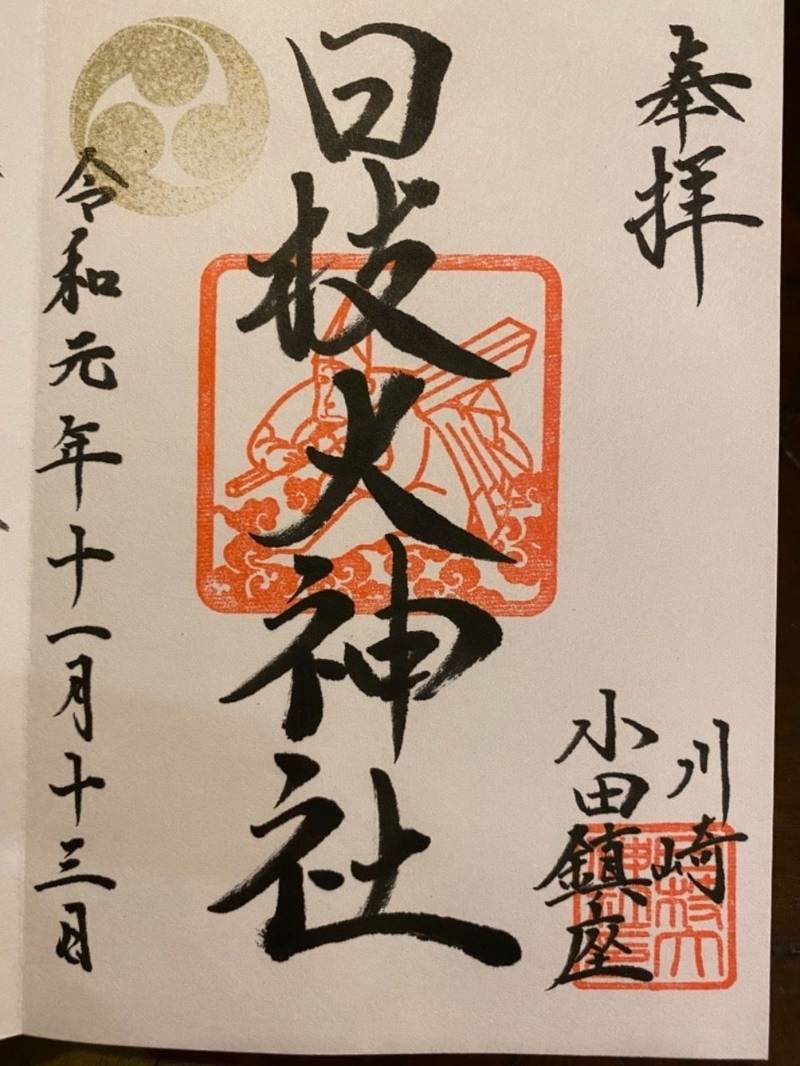 奉拝
川崎
小田鎮座
日枝大神社
令和元年十一月十三日